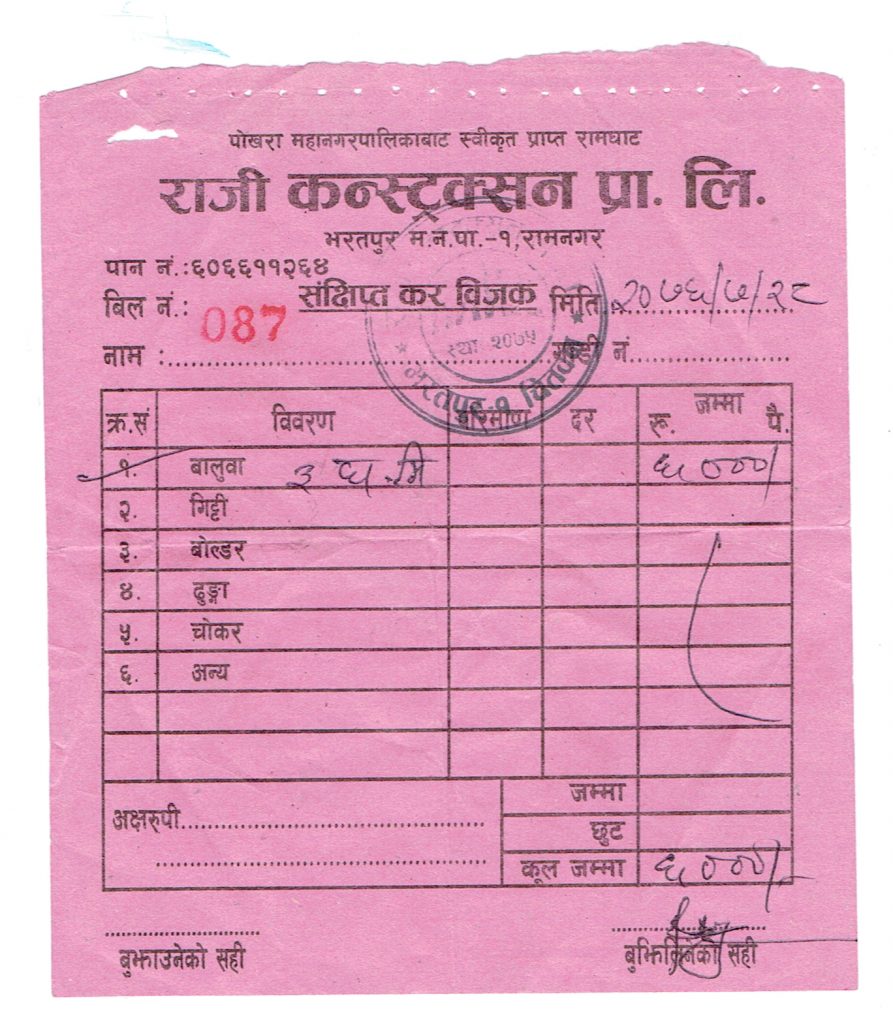 पोखरा महानगरपालिकाबाट स्वीकृत प्राप्त रामघाट
राजी कन्स्ट्रक्सन प्रा. लि.
भरतपुर म.न.पा.-१,रामनगर
पान नं.:६०६६११२६४
संक्षिप्त कर विजक
बिल नं.: 087
मिति २०७६/७/२८
स्था २०७५
भरतपुर-१ चितवन
नाम : गाडी नं.
क्र.सं विवरण परिमाण दर जम्मा
रु. पै.
१. बालुवा ३ घ.मि ६०००/
२. गिट्टी
३. बोल्डर
४. ढुङ्गा
५. चोकर
६. अन्य
जम्मा
अक्षरुपी
छुट
कूल जम्मा ६०००/-
बुझाउनेको सही बुझिलिनेको सही